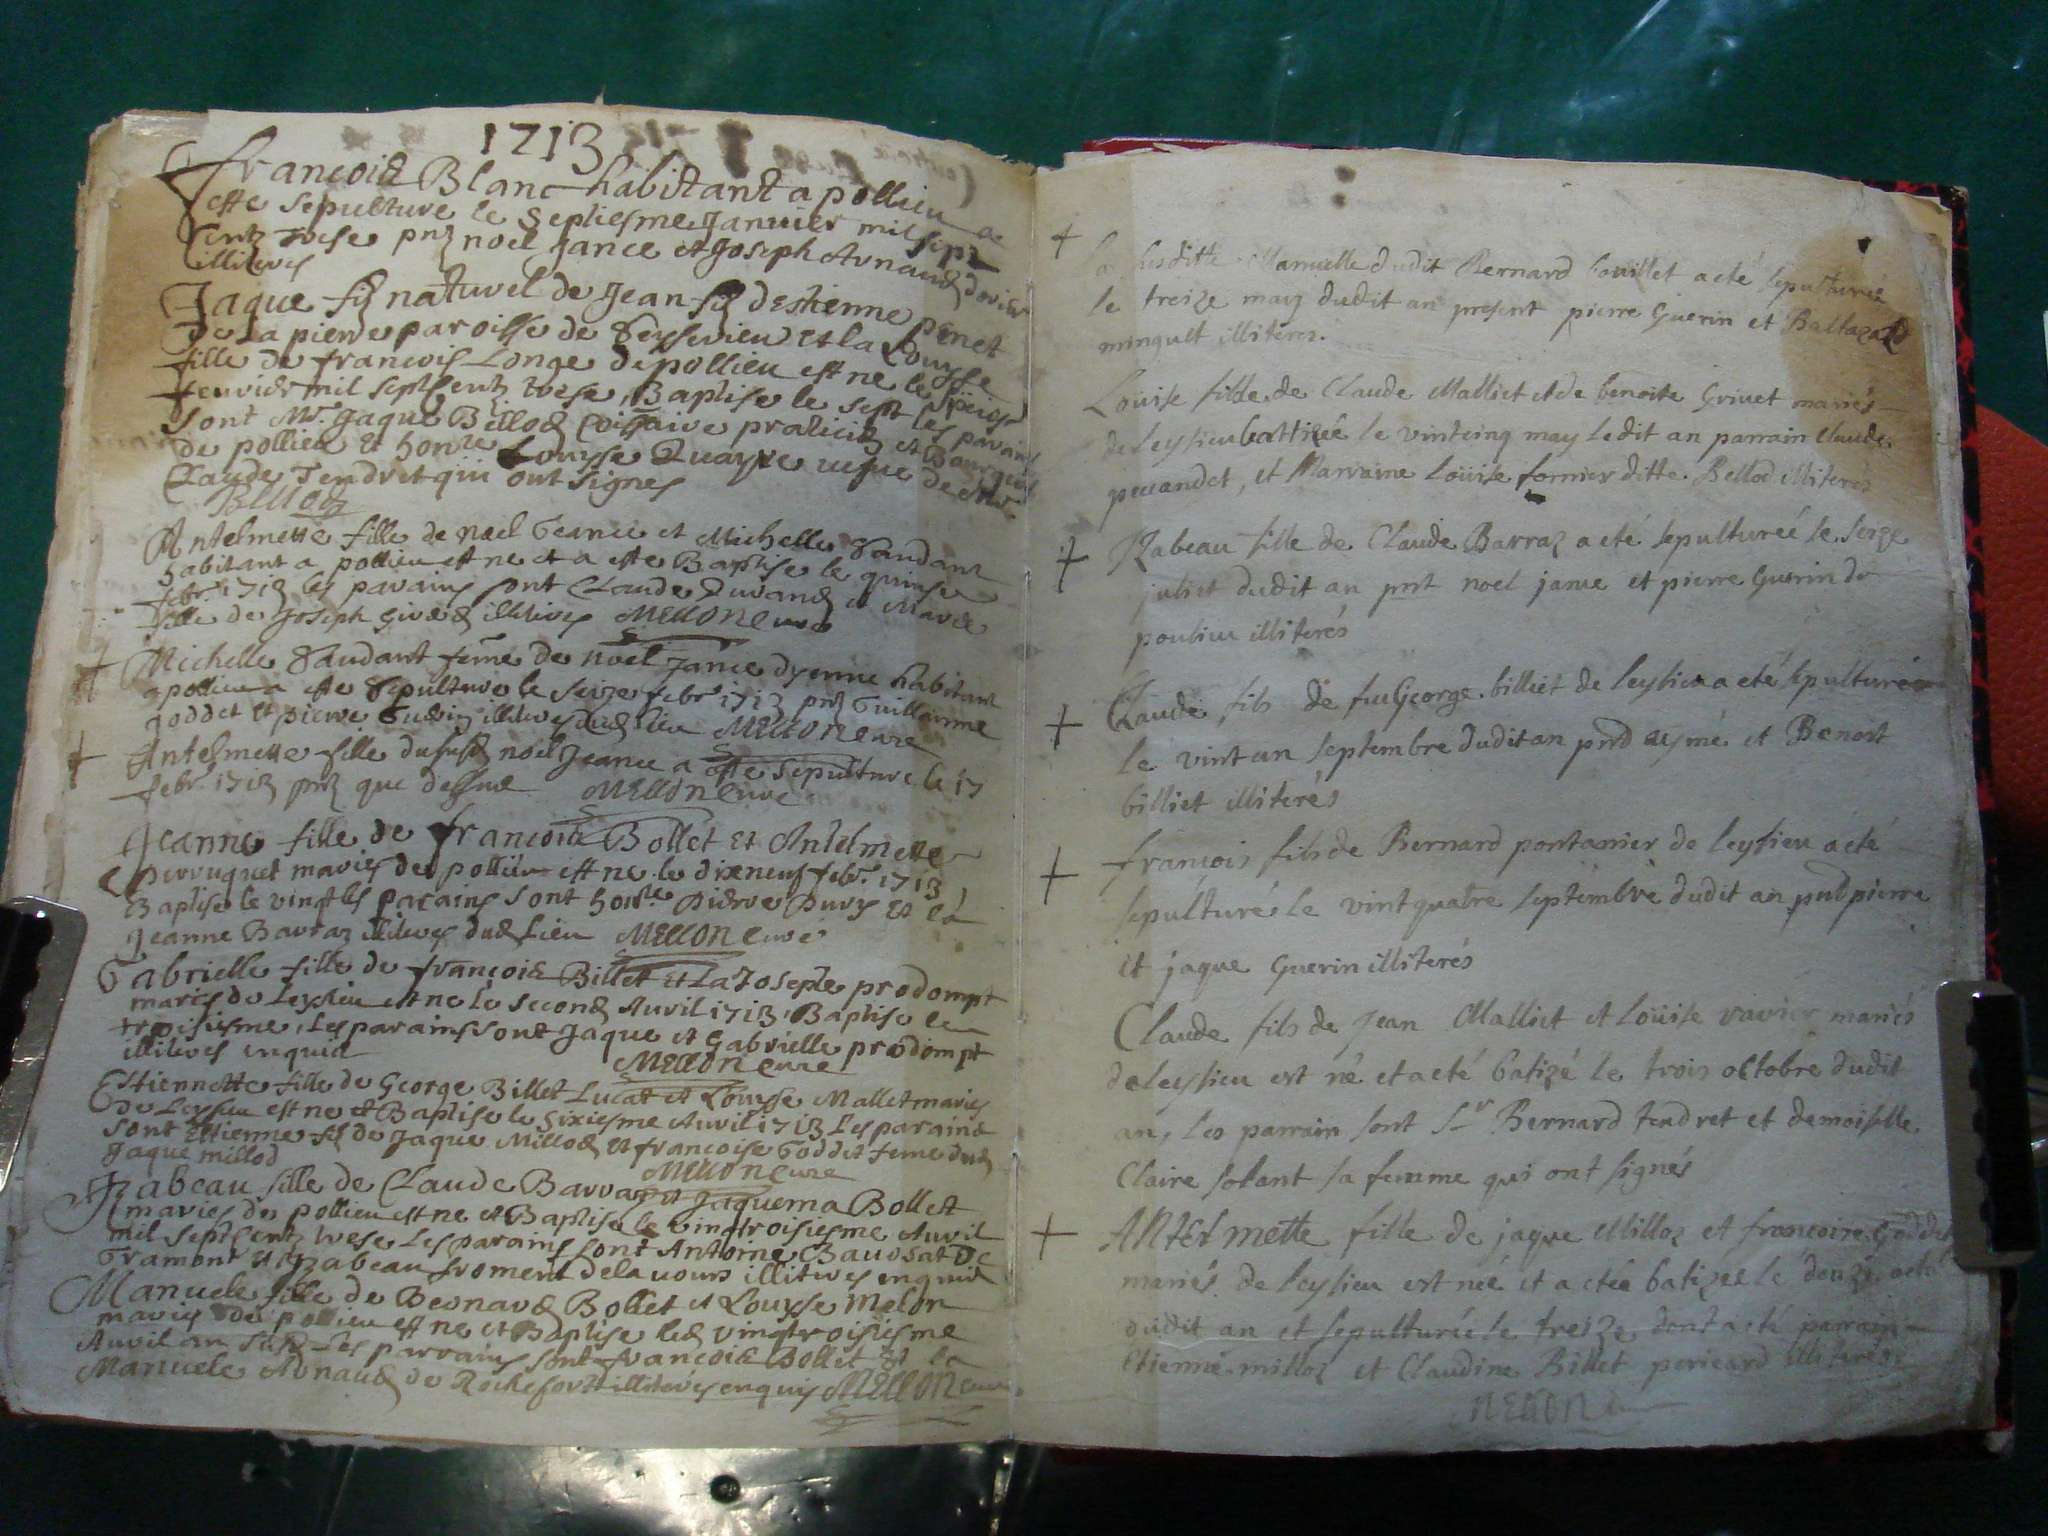 1713
francois Blanc habitant a pollieu a
este sepulture le septiesme Janvier mil sept
Centz trese pnt noel Jance et Joseph Arnaud
illiteres
Jaque filz naturel de Jean filz destienne penet
de la pierre paroisse de Seyserieu et la Louyse
fille de francois Longe de pollieu est ne le
feuvrier mil sept Centz trese, Baptise le sept les parains
sont Mr. Jaque Billod praticien et Bourgeois
de pollieu et honble Louyse vefve de
Claude Tendret qui ont signes
Billod
Antelmette fille de noel Jeance et Michelle Dandant
habitant a pollieu est ne et a este Baptise le quinse
febr. 1713 les parains sont Claude Durand et Marie
fille de Joseph illiteres MELLON cure
Michelle Dandant feme de noel Jance dyenne habitant
a pollieu a este sepulture le seize febr 1713 pnt Guillaume
goddet et pierre Guerin illiteres dud lieu MELLON cure
Antelmette fille dususd noel Jeance a este sepulture le 17
febr. 1713 pnt que dessus MELLON cure
Jeanne fille de francois Bollet et Antelmette
perruquet maries de pollieu est ne le dixneuf febr. 1713
Baptise le vingt les parains sont honble Pierre Puvy et la
Jeanne Barraz illiteres dud lieu MELLON cure
Gabrielle fille de francois Billet et la Josephe prodompt
maries de Leysieu est ne le second Avril 1713, Baptise le
troisiesme, les parains sont Jaque et Gabrielle prodompt
illiteres enquis MELLON cure
Estiennette fille de George Billet Lucat et Louyse Mallet maries
de Leysieu est ne et Baptise le sixiesme Avril 1713 les parains
sont Estienne filz de Jaque Millod et francoise Goddet feme dud
Jaque millod MELLON cure
Izabeau fille de Claude Barraz et Jaquema Bollet
maries de pollieu est ne et Baptise le vingtroisiesme Avril
mil sept Centz trese les parains sont Antoine Bavosat de
Tramont et Izabeau froment delavours illiteres enquis
Manuele fille de Bernard Bollet et Louyse Melon
maries de pollieu est ne et Baptise led vingtroisiesme
Avril an susd les parrains sont francois Bollet et la
Manuele Arnaud de Rochefort illiteres enquis MELLON cure
la susditte Manuelle dudit Bernard bouillet a eté sepulturée
le treize may dudit an present pierre Guerin et Baltazard
mingult illiteres.
Louise fille de Claude Malliet et de benoite Grivet mariés
de leysieu battizée le vintcinq may ledit an parrain Claude
pevandet, et Marraine Louise fornier ditte Bellod illiterés
Izabeau fille de Claude Barraz a eté sepulturée le seize
juliet dudit an pnt noel janne et pierre Guerin de
poulieu illiterés
Claude fils de feu George billiet de leysieu a eté sepulturé
le vint un septembre dudit an pnt aymé et Benoit
billiet illiterés
francois fils de Bernard pontanier de leysieu a eté
sepulturé le vintquatre septembre dudit an pnt pierre
et jaque Guerin illiterés
Claude fils de Jean Malliet et Loüise ravier mariés
de leysieu est né et a eté batizé le trois octobre dudit
an, les parrain sont Sr Bernard tendret et demoiselle
Claire solant sa femme qui ont signés
ANtelmette fille de jaque Milloz et francoise Goddet
mariés de leysieu est neé et a eteé batizeé le douze
dudit an et sepulturée le treize dont a eté parrain
etienne milloz et Claudine Billet perieard illiterés
MELLON